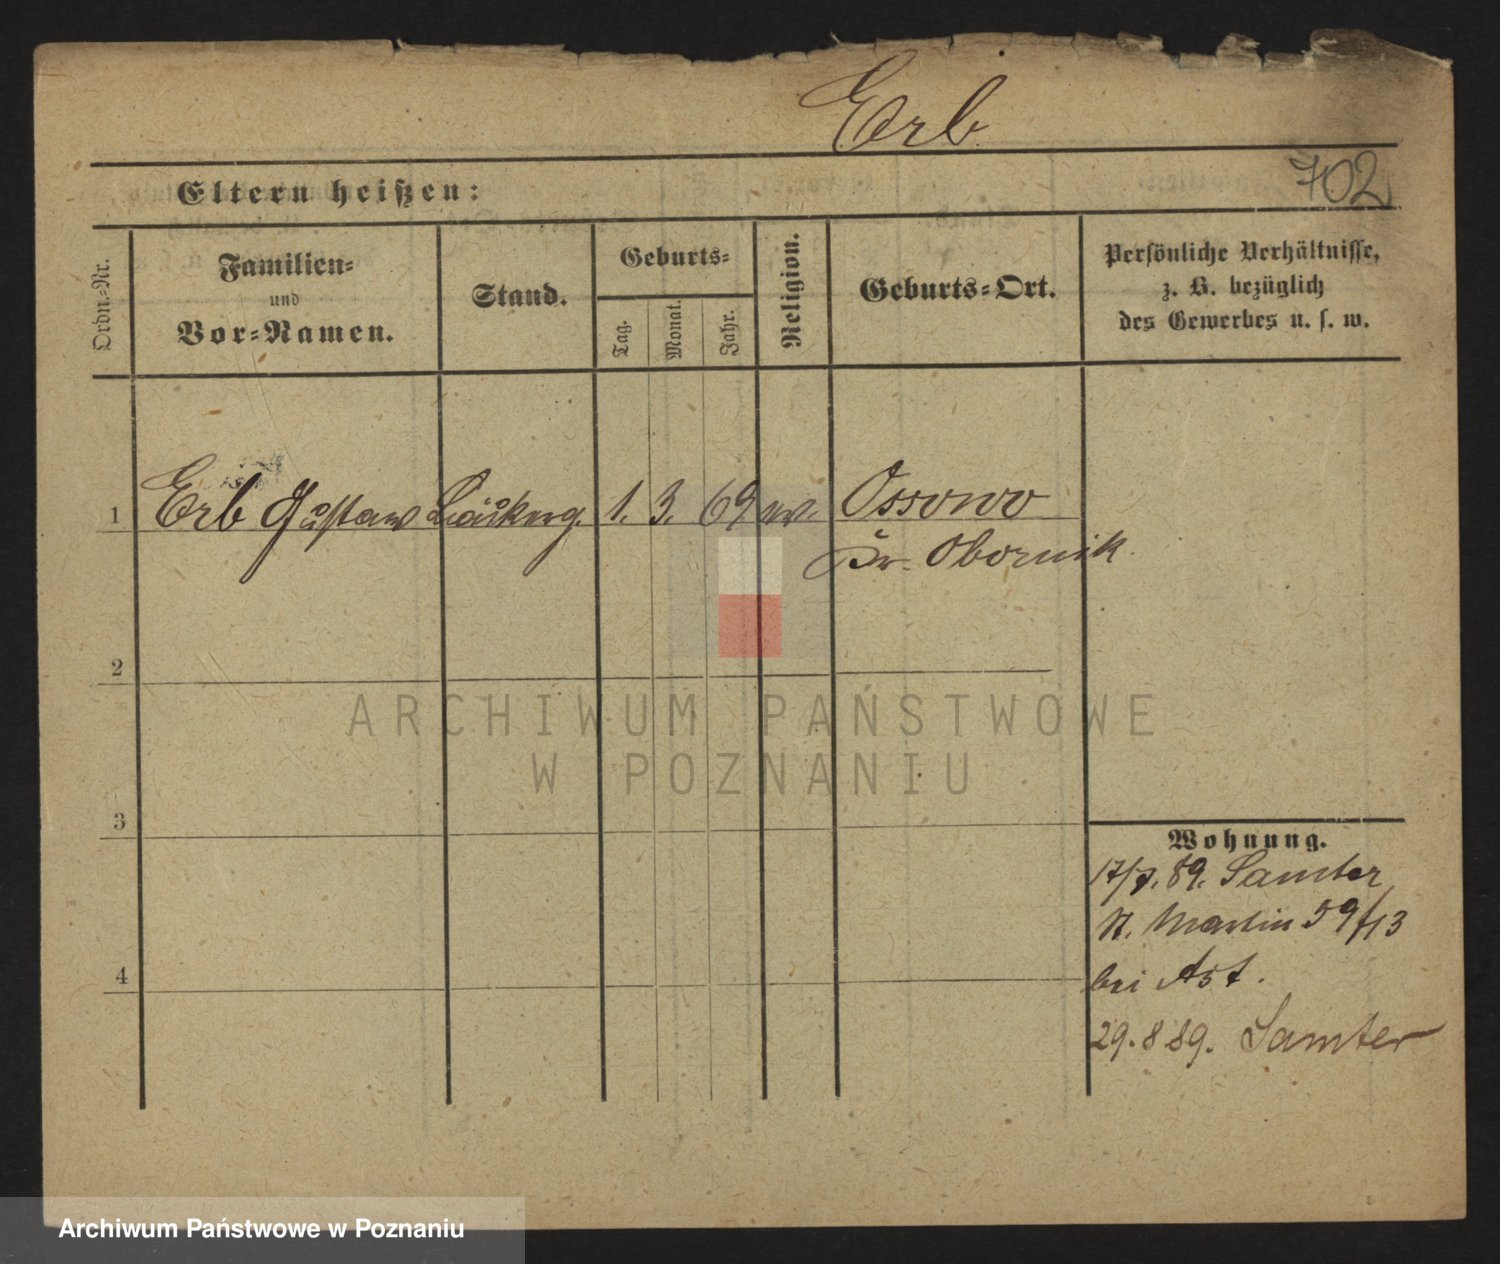 Erb
702
Eltern heißen:
Ordn.=Nr.
Familien=
und
Vor=Namen.
Stand.
Geburts=
Tag.
Monat.
Jahr.
Religion.
Geburts=Ort.
Persönliche Verhältnisse,
z. B. bezüglich
des Gewerbes u. s. w.
1 Erb Gustaw 1. 3. 69 ev. Ossowo
Kr. Obornik
2
3
4
Wohnung.
17/7. 89. Samter
St. Martin 59/13
bei Ast.
29.8 89. Samter
ARCHIWUM PAŃSTWOWE
W POZNANIU
Archiwum Państwowe w Poznaniu